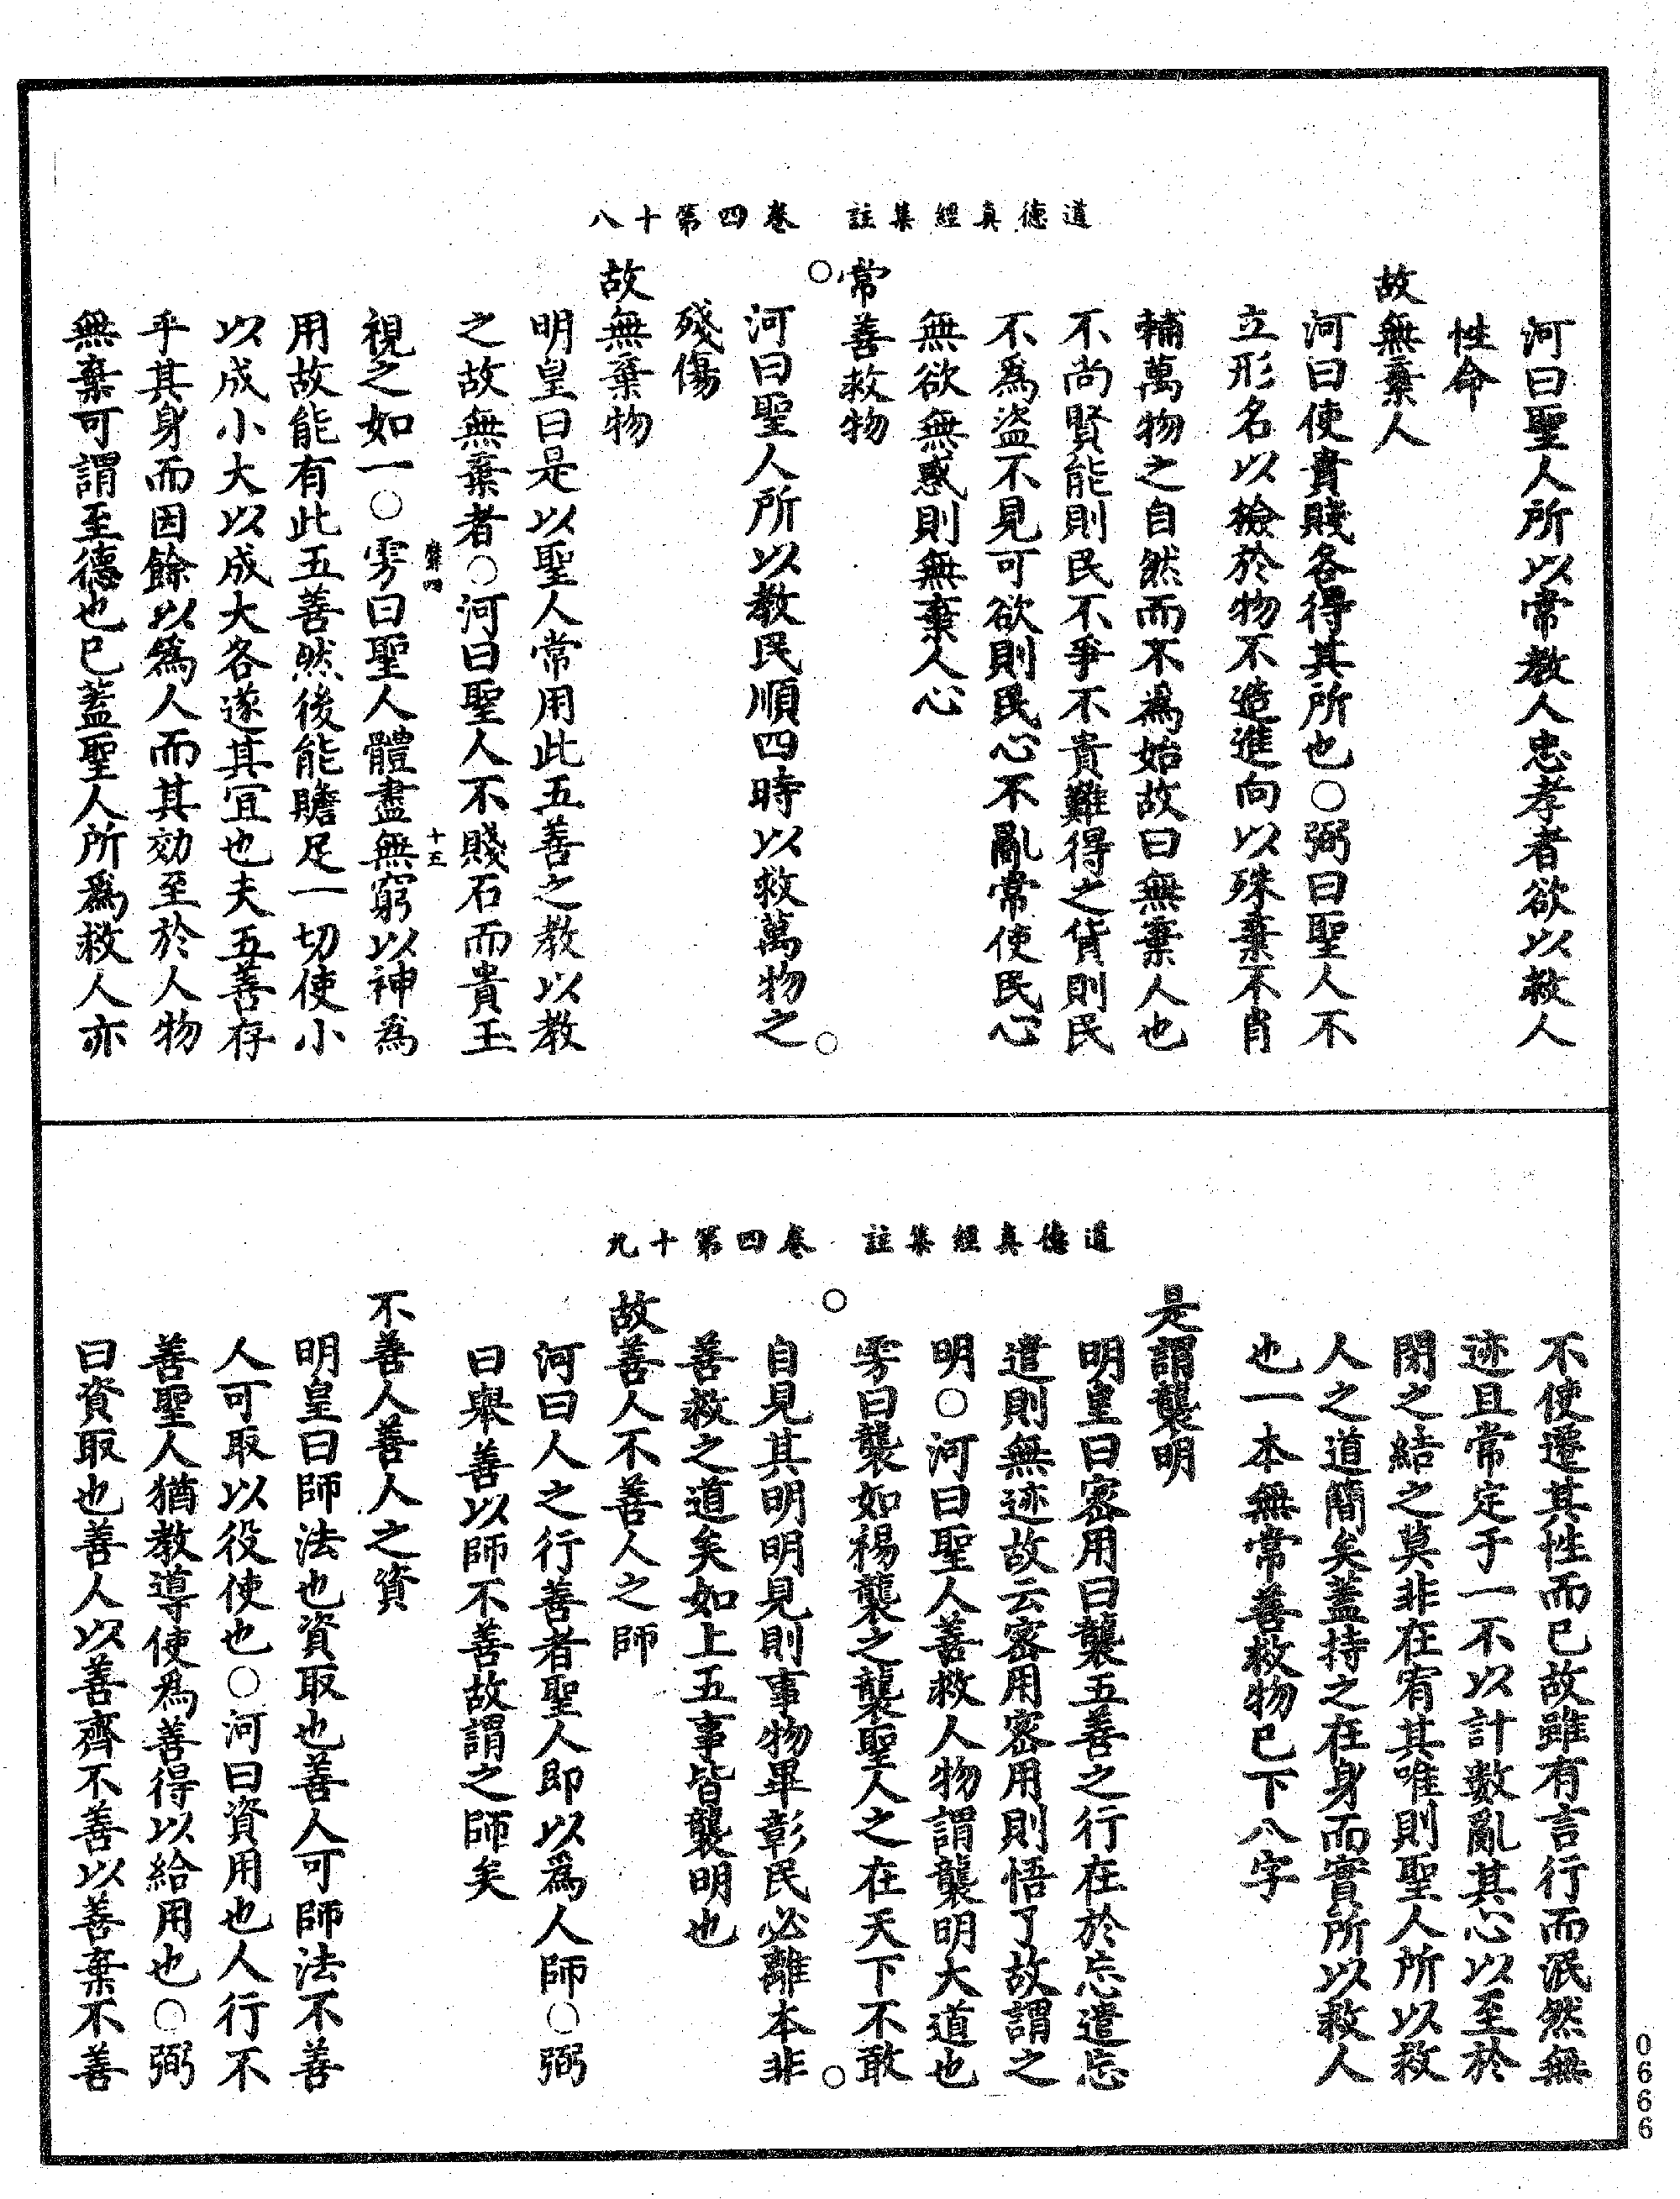 道德真經集註　卷四第十八
河曰聖人所以常教人忠孝者欲以救人
性命
故無棄人
河曰使貴賤各得其所也○弼曰聖人不
立形名以檢於物不造進向以殊棄不肖
輔萬物之自然而不為始故曰無棄人也
不尚賢能則民不爭不貴難得之貨則民
不為盜不見可欲則民心不亂常使民心
無欲無惑則無棄人心
常善救物
○
○
河曰聖人所以教民順四時以救萬物之
殘傷
故無棄物
明皇曰是以聖人常用此五善之教以教
之故無棄者○河曰聖人不賤石而貴玉
十五
視之如一○雱曰聖人體盡無窮以神為
用故能有此五善然後能贍足一切使小
以成小大以成大各遂其宜也夫五善存
乎其身而因餘以為人而其効至於人物
無棄可謂至德也已蓋聖人所為救人亦
道德真經集註　卷四第十九
不使遷其性而已故雖有言行而泯然無
迹且常定于一不以計數亂其心以至於
閉之結之莫非在宥其唯則聖人所以救
人之道簡矣蓋持之在身而實所以救人
也一本無常善救物已下八字
是謂襲明
明皇曰密用曰襲五善之行在於忘遣忘
遣則無迹故云密用密用則悟了故謂之
明○河曰聖人善救人物謂襲明大道也
雱曰襲如裼襲之襲聖人之在天下不敢
○
○
自見其明明見則事物畢彰民必離本非
善救之道矣如上五事皆襲明也
故善人不善人之師
河曰人之行善者聖人即以為人師○弼
曰舉善以師不善故謂之師矣
不善人善人之資
明皇曰師法也資取也善人可師法不善
人可取以役使也○河曰資用也人行不
善聖人猶教導使為善得以給用也○弼
曰資取也善人以善齊不善以善棄不善
0666